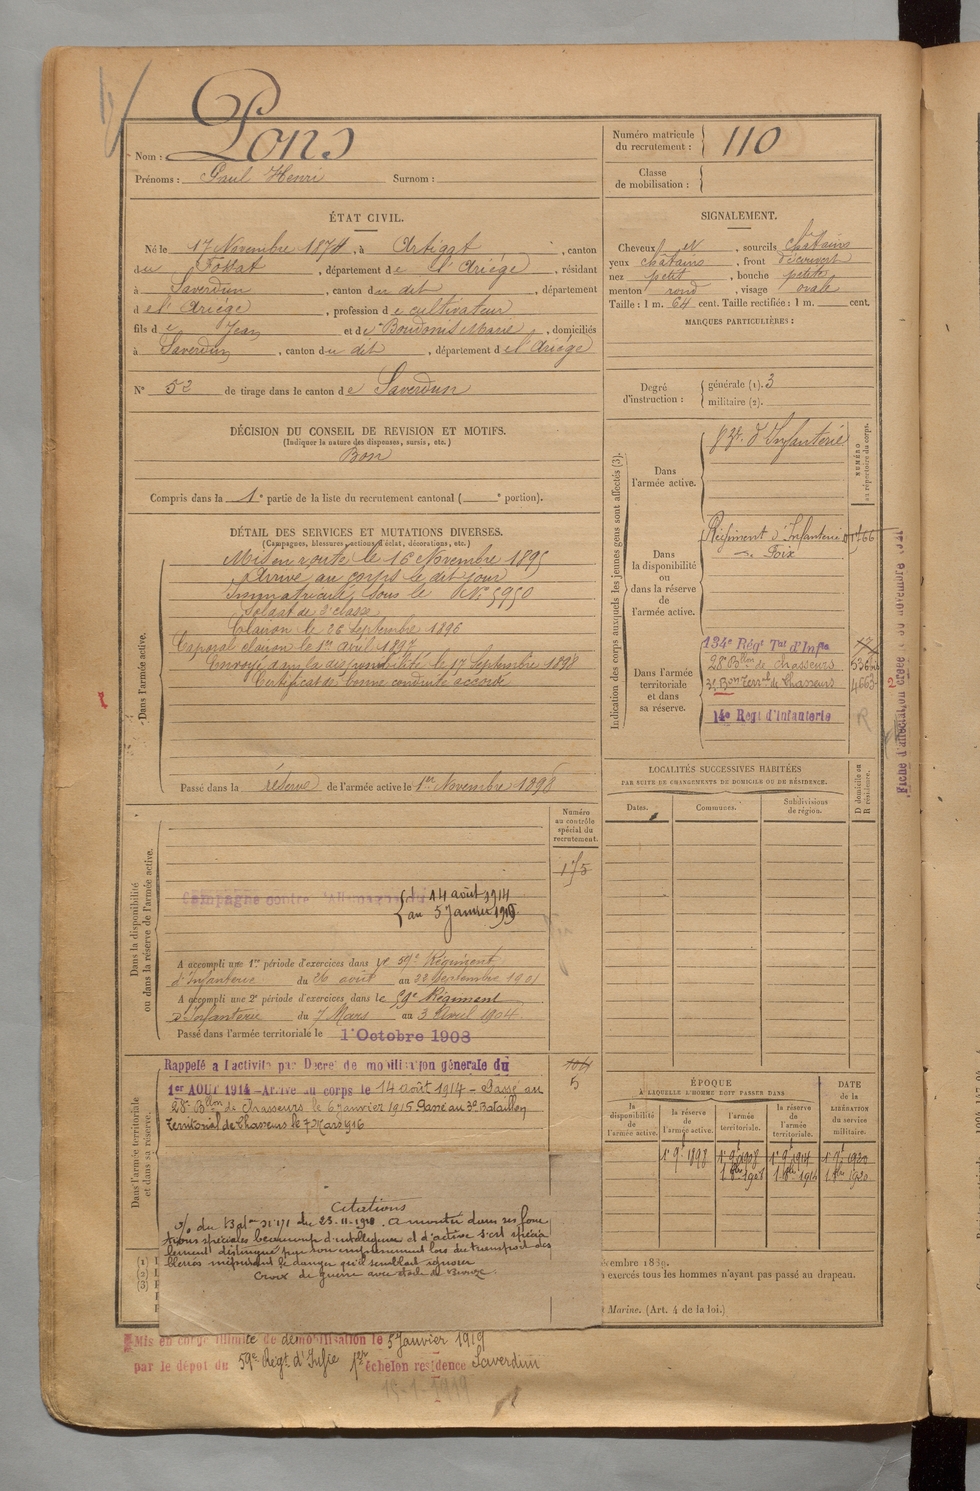 Nom : Pons
Prénoms : Paul Henri Surnom :
Numéro matricule du recrutement : 110
Classe de mobilisation :
ÉTAT CIVIL.
Né le 17 Novembre 1874, à Artigat, canton
du Fossat, département de l'Ariége, résidant
à Saverdun, canton du dit, département
de l'Ariége, profession de cultivateur
fils de Jean et de Boudouis Marie, domiciliés
à Saverdun, canton du dit, département de l'Ariége
N° 52 de tirage dans le canton de Saverdun
DÉCISION DU CONSEIL DE REVISION ET MOTIFS.
(Indiquer la nature des dispenses, sursis, etc.)
Bon
Compris dans la 1e partie de la liste du recrutement cantonal ( e portion).
DÉTAIL DES SERVICES ET MUTATIONS DIVERSES.
(Campagnes, blessures, actions d'éclat, décorations, etc.)
Dans l'armée active.
Mis en route le 16 Novembre 1895
Arrivé au corps le dit jour
Immatriculé sous le N° 5950
Soldat de 2e classe
Clairon le 26 Septembre 1896
Caporal clairon le 1er avril 1897
Envoyé dans la disponibilité le 17 Septembre 1898
Certificat de bonne conduite accordé
Passé dans la réserve de l'armée active le 1er Novembre 1898
Numéro au contrôle spécial du recrutement.
175
Dans la disponibilité ou dans la réserve de l'armée active.
Campagne contre l'Allemagne du 14 août 1914
au 5 Janvier 1919.
A accompli une 1re période d'exercices dans le 59e Régiment
d'Infanterie du 26 août au 22 Septembre 1901
A accompli une 2e période d'exercices dans le 59e Régiment
d'Infanterie du 7 Mars au 3 Avril 1904.
Passé dans l'armée territoriale le 1er Octobre 1908
Dans l'armée territoriale et dans sa réserve.
Rappelé a l'activité par Decret de mobilisation générale du
1er AOUT 1914 - Arrivé au corps le 14 août 1914 - Passé au
28e Bllon de Chasseurs le 6 janvier 1915 Passé au 3e Bataillon
territorial de Chasseurs le 7 Mars 1916
5
Citations
o/ du Bllon N° 171 du 23.11.1918. A montré dans ses fonc
tions spéciales beaucoup d'intelligence et d'activé s'est spécia
lement distingué par son empressement lors du transport des
blessés méprisant le danger qu'il semblait ignorer
Croix de guerre avec étoile de Bronze.
Mis en congé illimité de démobilisation le 5 Janvier 1919
par le dépot du 59e Régt d'Infie 1er échelon residence Saverdun
15-1-1919
SIGNALEMENT.
Cheveux et, sourcils châtains
yeux châtains, front découvert
nez petit, bouche petite
menton rond, visage ovale
Taille : 1 m. 64 cent. Taille rectifiée : 1 m. cent.
MARQUES PARTICULIÈRES :
Degré d'instruction : générale (1). 3
militaire (2).
Indication des corps auxquels les jeunes gens sont affectés (3).
NUMÉRO au répertoire du corps.
Dans l'armée active.
d'Infanterie
Dans la disponibilité ou dans la réserve de l'armée active.
Régiment d'Infanterie
de Foix
Dans l'armée territoriale et dans sa réserve.
134e Régt Tal d'Infie
28e Bllon de Chasseurs
3e Bon Terral de Chasseurs 4663
14e Regt d'Infanterie
LOCALITÉS SUCCESSIVES HABITÉES
PAR SUITE DE CHANGEMENTS DE DOMICILE OU DE RÉSIDENCE.
D domicile ou R résidence.
Dates. Communes. Subdivisions de région.
ÉPOQUE
À LAQUELLE L'HOMME DOIT PASSER DANS
la disponibilité de l'armée active. la réserve de l'armée active. l'armée territoriale. la réserve de l'armée territoriale.
DATE de la LIBÉRATION du service militaire.
exercés tous les hommes n'ayant pas passé au drapeau.
Marine. (Art. 4 de la loi.)